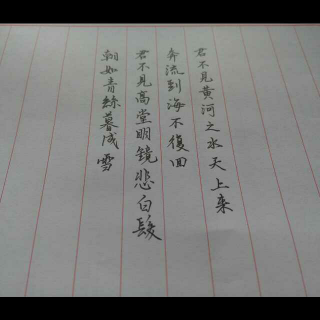 君不見黃河之水天上来
奔流到海不復回
君不見高堂明鏡悲白髮
朝如青絲暮成雪